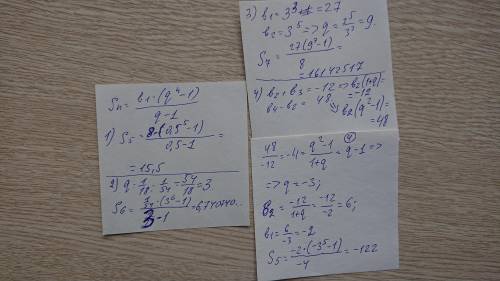 Sn = b1·(q^4-1) / q-1
1) S5 = 8·(0,5^5-1) / 0,5-1 =
= 15,5
2) q = 1/18 : 1/54 = 54/18 = 3
S6 = 1/54·(3^6-1) / 3-1 = 6,740740...
3) b1 = 3^3 = 27
b2 = 3^5 => q = 3^5/3^3 = 9
S7 = 27(9^7-1) / 8 =
= 16142517
4) b2+b3 = -12 => b2(1+q) = -12
b4-b2 = 48 => b2(q^2-1) = 48
48/-12 = -4 = q^2-1 / 1+q = q-1 =>
=> q = -3;
b2 = -12/1+q = -12/-2 = 6;
b1 = 6/-3 = -2
S5 = -2·(-3^5-1) / -4 = -122